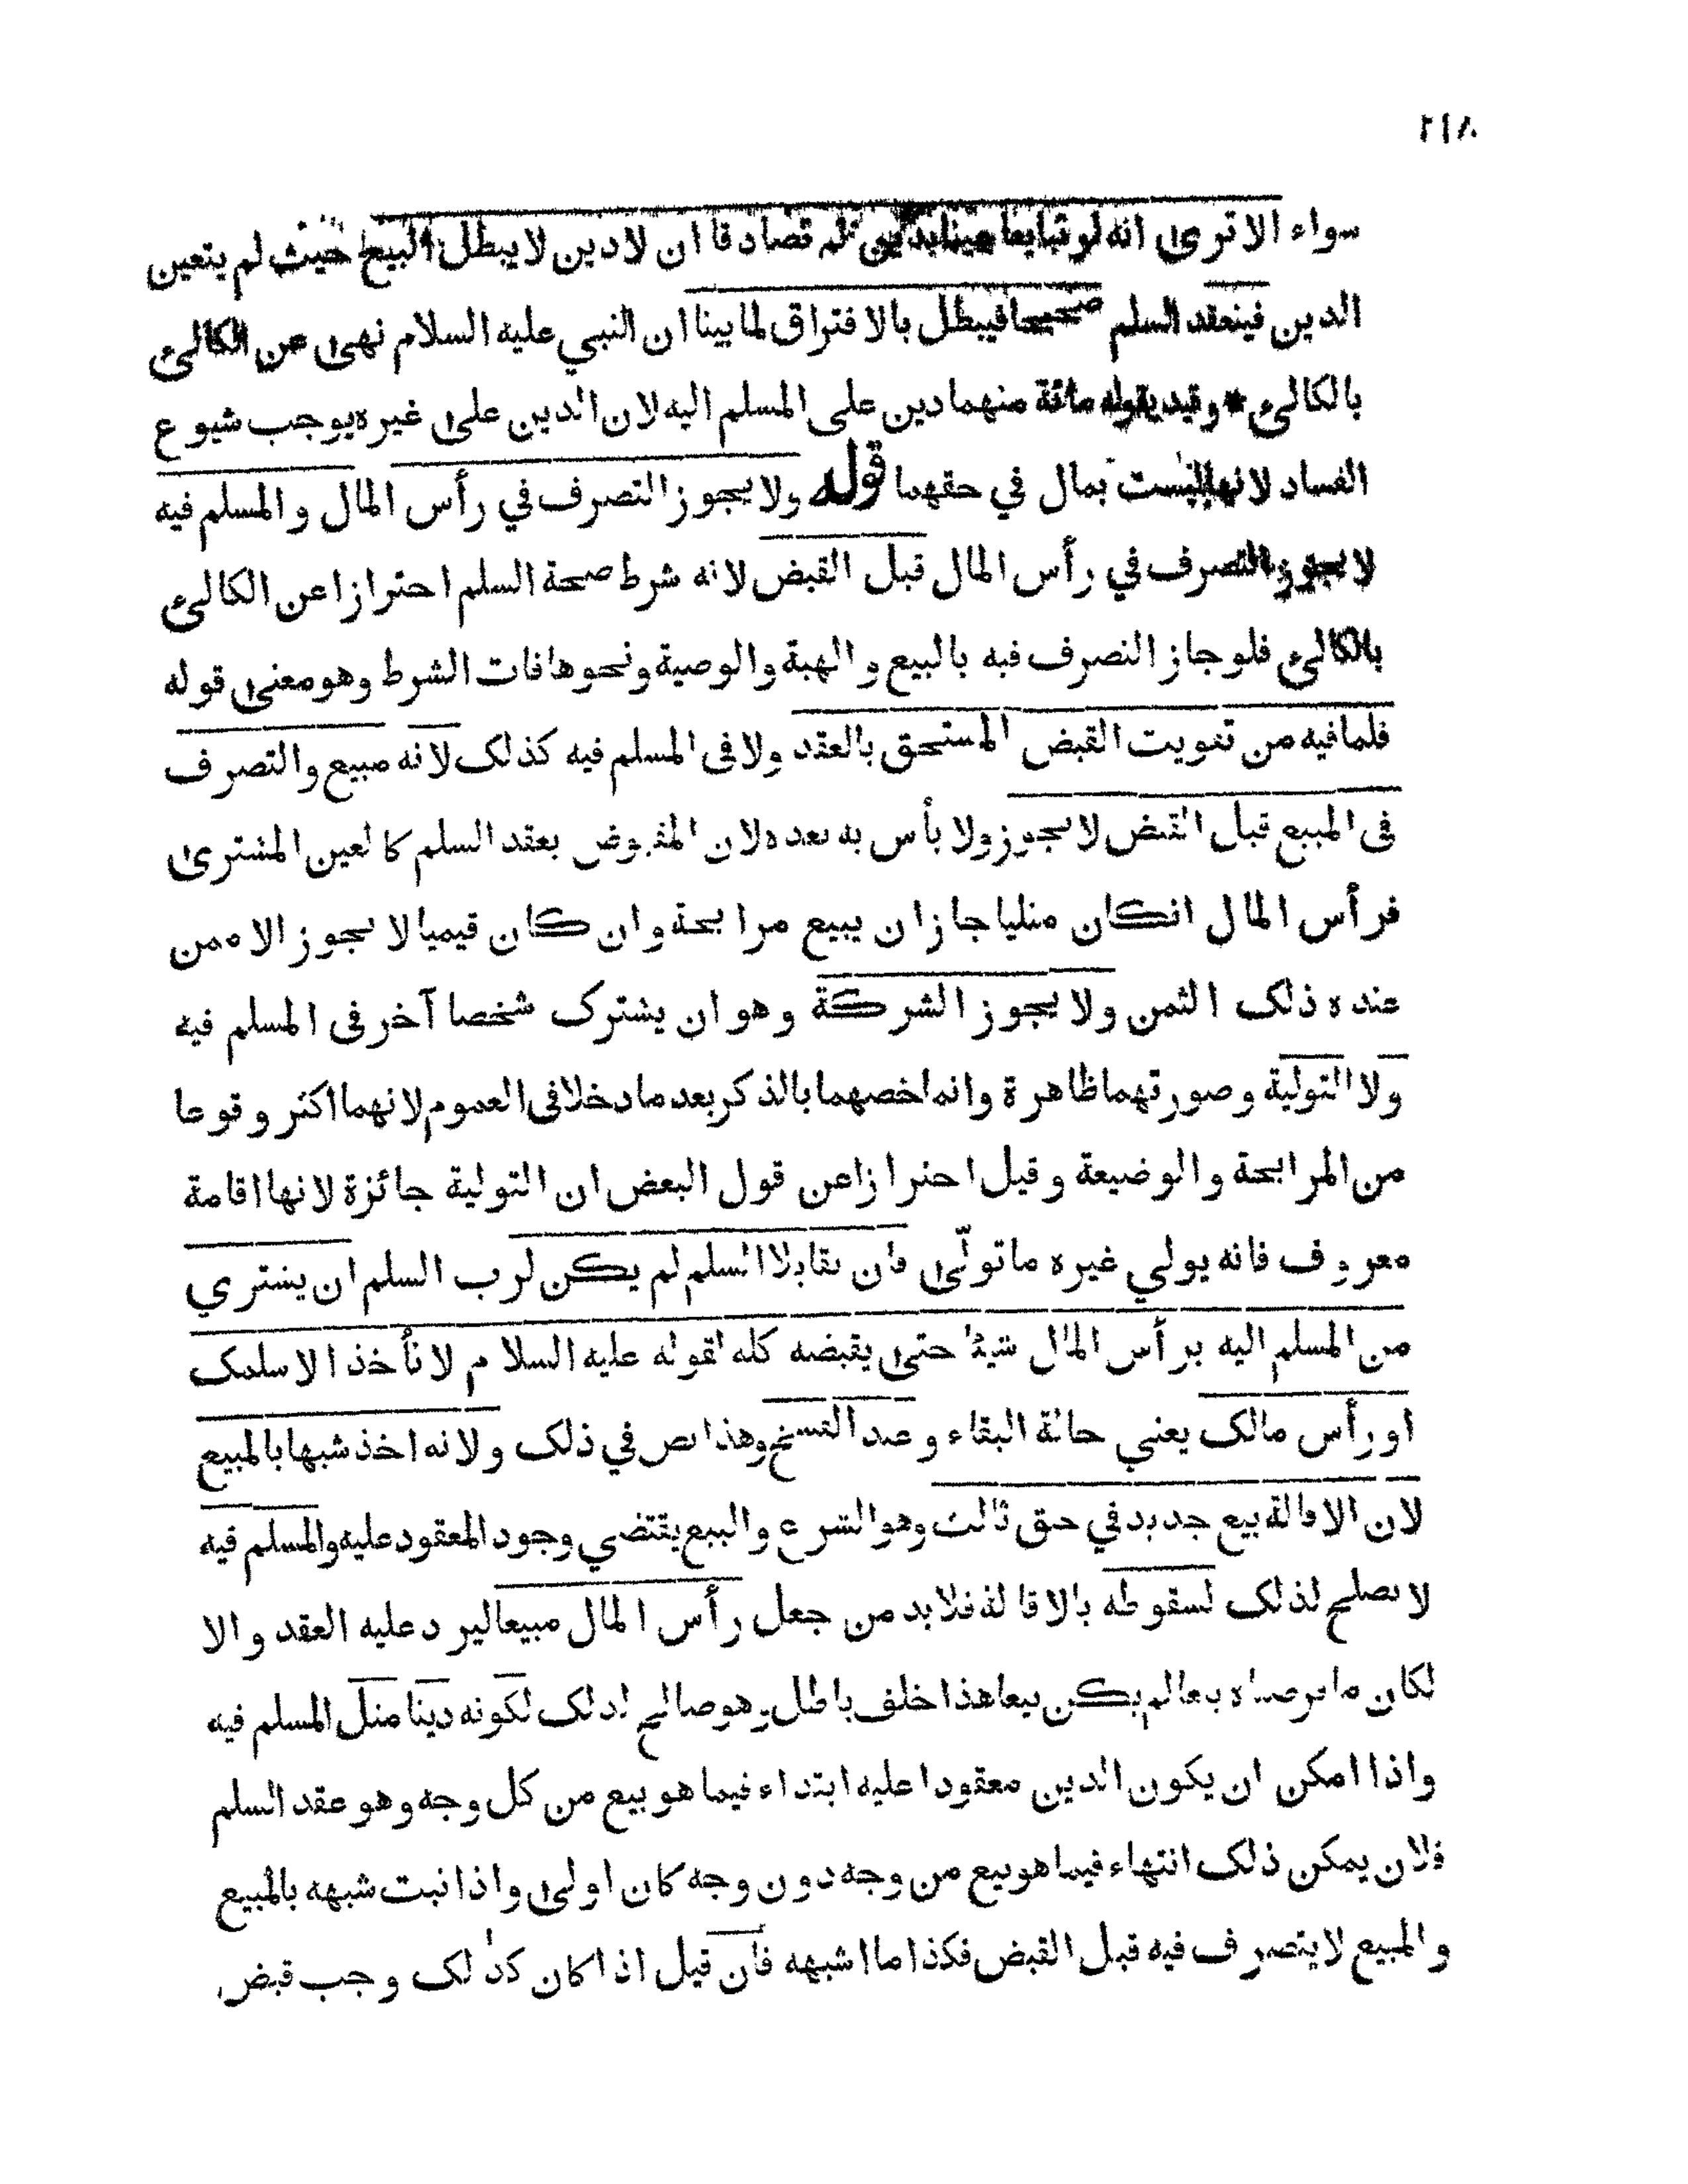 ٨١٦
سواء الا ترى انه لو تبايعا عينا بدين ثم تصادقا ان لا دين لا يبطل البيع حيث لم يتعين
الدين فينعقد السلم صحيحا فيبطل بالافتراق لما بينا ان النبي عليه السلام نهى عن الكالئ
بالكالئ * وقيد بقوله مائة منهما دين على المسلم اليه لان الدين على غيره يوجب شيوع
الفساد لانها ليست بمال في حقهما قوله ولا يجوز التصرف في رأس المال والمسلم فيه
لا يجوز التصرف في رأس المال قبل القبض لانه شرط صحة السلم احترازا عن الكالئ
بالكالئ فلو جاز التصرف فيه بالبيع والهبة والوصية ونحوها فات الشرط وهو معنى قوله
فلما فيه من تفويت القبض المستحق بالعقد ولا فى المسلم فيه كذلك لانه مبيع والتصرف
فى المبيع قبل القبض لا يجوز ولا بأس به بعده لان المقبوض بعقد السلم كالعين المشترى
فرأس المال انكان مثليا جاز ان يبيع مرابحة وان كان قيميا لا يجوز الا ممن
عنده ذلك الثمن ولا يجوز الشركة وهو ان يشترك شخصا آخر فى المسلم فيه
ولا التولية وصورتهما ظاهرة وانما خصهما بالذكر بعد ما دخلا فى العموم لانهما اكثر وقوعا
من المرابحة والوضيعة وقيل احترازا عن قول البعض ان التولية جائزة لانها اقامة
معروف فانه يولي غيره ما تولّى فان تقايلا السلم لم يكن لرب السلم ان يشتري
من المسلم اليه برأس المال شيئا حتى يقبضه كله لقوله عليه السلام لا تأخذ الا سلمك
او رأس مالك يعني حالة البقاء وعند الفسخ وهذا نص في ذلك ولانه اخذ شبها بالمبيع
لان الاقالة بيع جديد في حق ثالث وهو الشرع والبيع يقتضي وجود المعقود عليه والمسلم فيه
لا يصلح لذلك لسقوطه بالاقالة فلا بد من جعل رأس المال مبيعا ليرد عليه العقد والا
لكان ما فرضناه بيعا لم يكن بيعا هذا خلف باطل وهو صالح لذلك لكونه دينا مثل المسلم فيه
واذا امكن ان يكون الدين معقودا عليه ابتداء فيما هو بيع من كل وجه وهو عقد السلم
فلان يمكن ذلك انتهاء فيما هو بيع من وجه دون وجه كان اولى واذا ثبت شبهه بالمبيع
والمبيع لا يتصرف فيه قبل القبض فكذا ما اشبهه فان قيل اذا كان كذلك وجب قبض